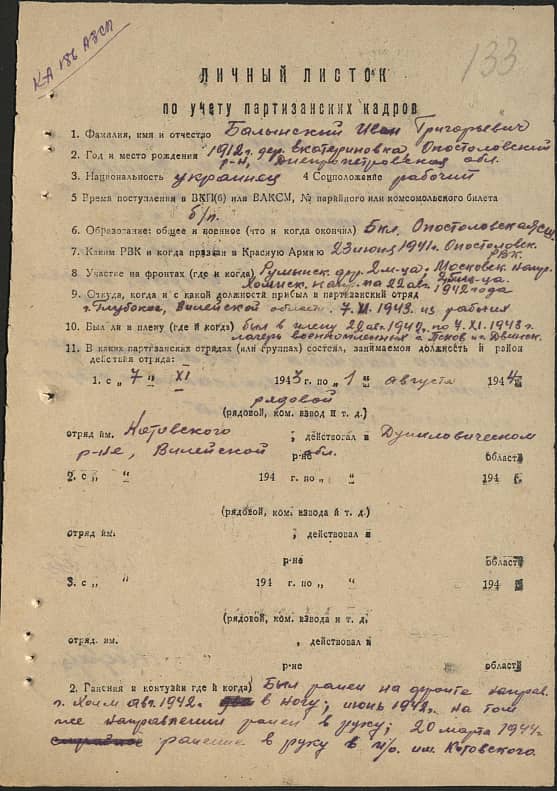 КА 186 АЗСП
133
ЛИЧНЫЙ ЛИСТОК
по учету партизанских кадров
1. Фамилия, имя и отчество Балынский Иван Григорьевич
2. Год и место рождения 1912 г. дер. Екатериновка, Опостоловский
р-н, Днепропетровская обл.
3. Национальность украинец 4 Соцположение рабочий
5 Время поступления в ВКП(б) или ВЛКСМ, № парийного или комсомольского билета
б/п.
6. Образование: общее и военное (что и когда окончил) 5 кл. Опостоловская
7. Каким РВК и когда призван в Красную Армию 23 июня 1941 г. Опостоловск.
РВК.
8 Участие на фронтах (где и когда) Румынск. фр. 2 м-ца. Московск. напр.
Холмск. напр. по 22 авг. 1942 года
9. Откуда, когда и с какой должности прибыл в партизанский отряд
г. Глубокое, Вилейской области. 7.XI.1943. из рабочих
10. Был ли в плену (где и когда) был в плену 22 авг. 1942 г. по 7.XI.1943 г.
лагерь военнопленных г. Псков и г. Двинск.
11. В каких партизанских отрядах (или группах) состоял, занимаемой должность и район
действия отряда:
1. с „ 7 “ XI 1943 г. по „ 1 “ августа 1944
рядовой
(рядовой, ком. взвод и т. д.)
отряд им. Котовского ; действовал в Дуниловическом
р-не, Вилейской обл.
р-не области
2. с „ “ 194 г. по „ “ 194 г.
(рядовой, ком. взвода и т. д.)
отряд им. , действовал в
р-не области
3. с „ “ 194 г. по „ “ 194
(рядовой, ком. взвода и т. д.
отряд. им. ; действовал в
р-не области
2. Ганения и контузии где и когда) Был ранен на фронте направ.
г. Холм авг. 1942 г. в ногу; июнь 1942 г. на том
же направлении ранен в руку; 20 марта 1944 г.
ранение в руку в п/о. им. Котовского.